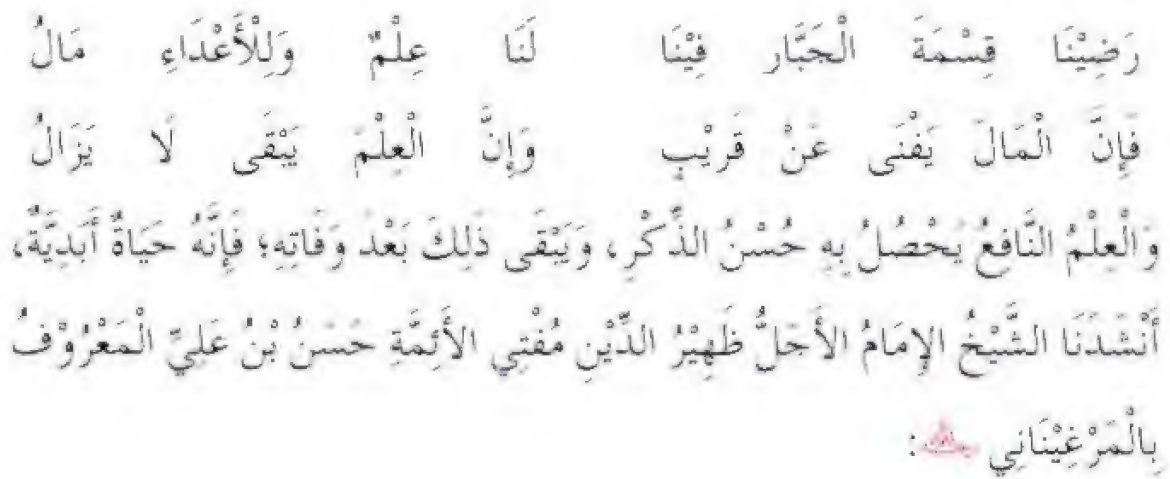 رَضِيْنَا قِسْمَةَ الْجَبَّارِ فِيْنَا لَنَا عِلْمٌ وَلِلْأَعْدَاءِ مَالُ
فَإِنَّ الْمَالَ يَفْنَى عَنْ قَرِيْبٍ وَإِنَّ الْعِلْمَ يَبْقَى لَا يَزَالُ
وَالْعِلْمُ النَّافِعُ يَحْصُلُ بِهِ حُسْنُ الذِّكْرِ، وَيَبْقَى ذَلِكَ بَعْدَ وَفَاتِهِ؛ فَإِنَّهُ حَيَاةٌ أَبَدِيَّةٌ،
أَنْشَدَنَا الشَّيْخُ الإِمَامُ الأَجَلُّ ظَهِيْرُ الدِّيْنِ مُفْتِي الأَئِمَّةِ حَسَنُ بْنُ عَلِيِّ الْمَعْرُوْفُ
بِالْمَرْغِيْنَانِي :